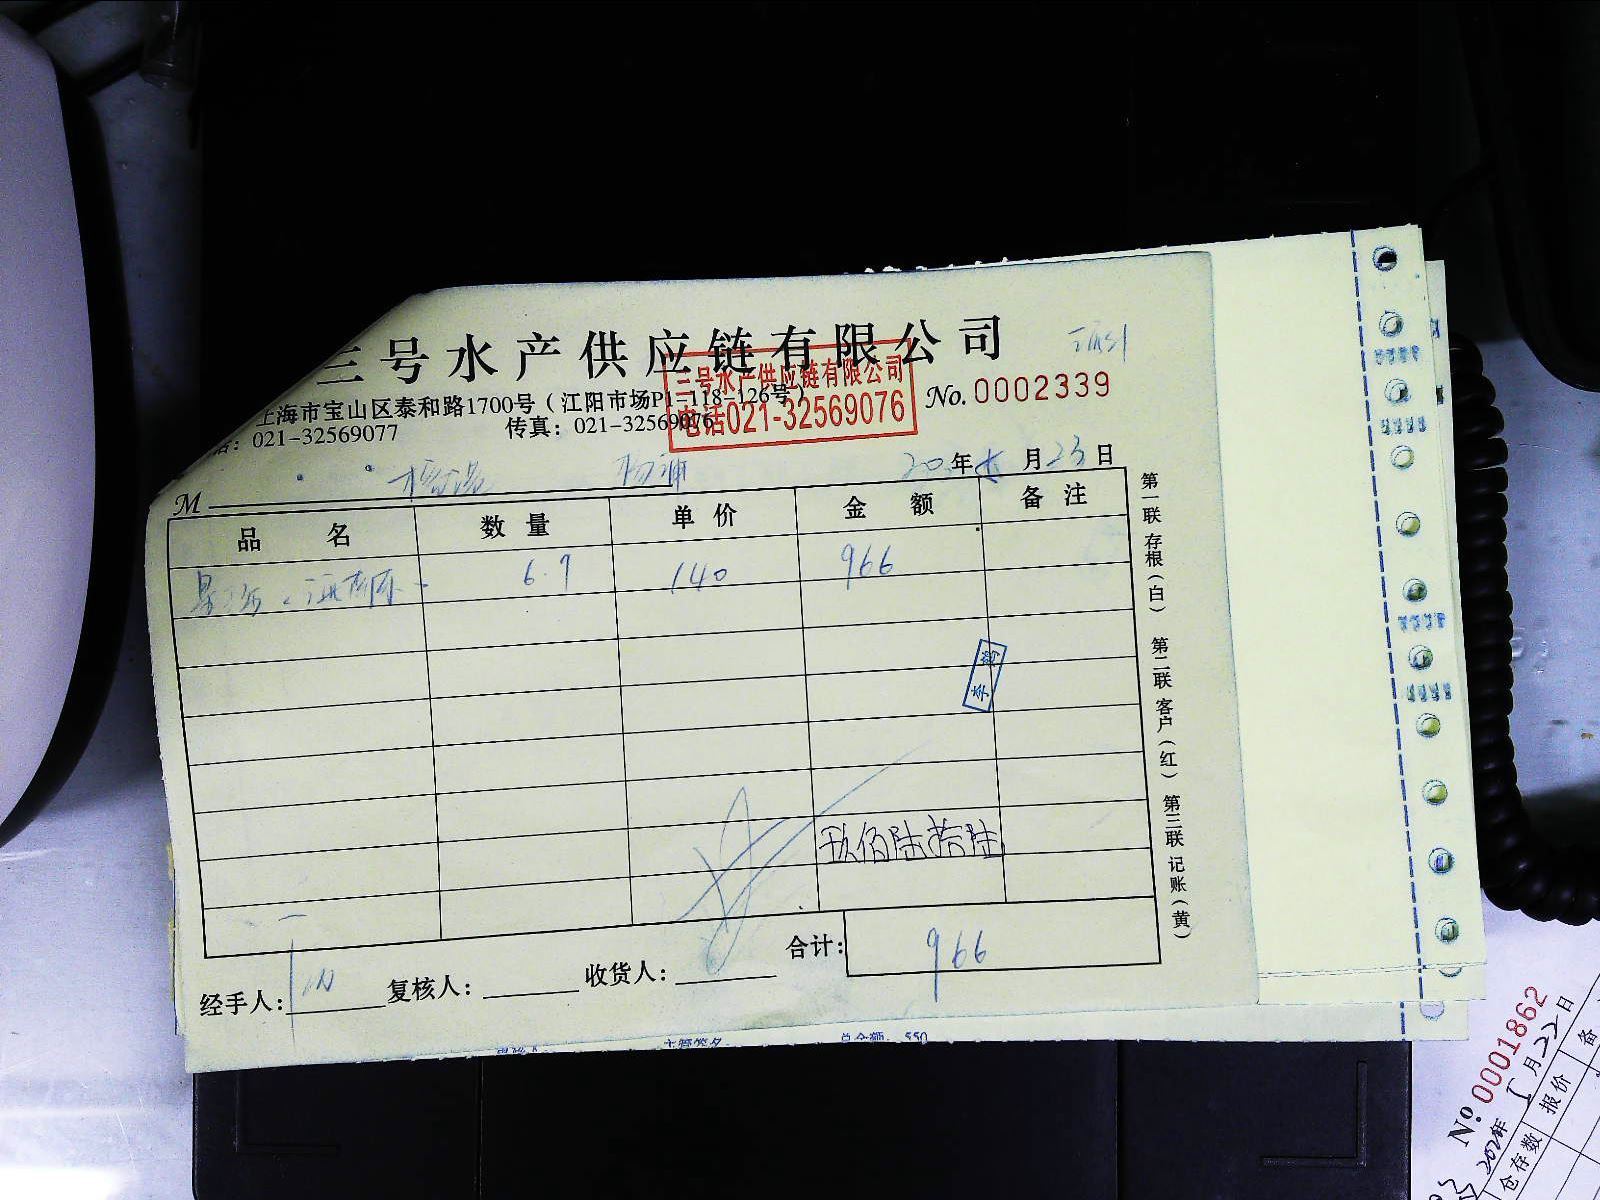 三号水产供应链有限公司
上海市宝山区泰和路1700号（江阳市场P1-118-126号）
三号水产供应链有限公司
电话021-32569076
No. 0002339
话: 021-32569077 传真: 021-32569076
20 年 月 23 日
M
品 名 数 量 单 价 金 额 备 注
6.9 140 966
李
玖佰陆拾陆
合计: 966
经手人: 复核人: 收货人:
第一联 存根（白） 第二联 客户（红） 第三联 记账（黄）
主管签名 总金额: 550
Nº 0001862
月22日
仓存数 报价 备